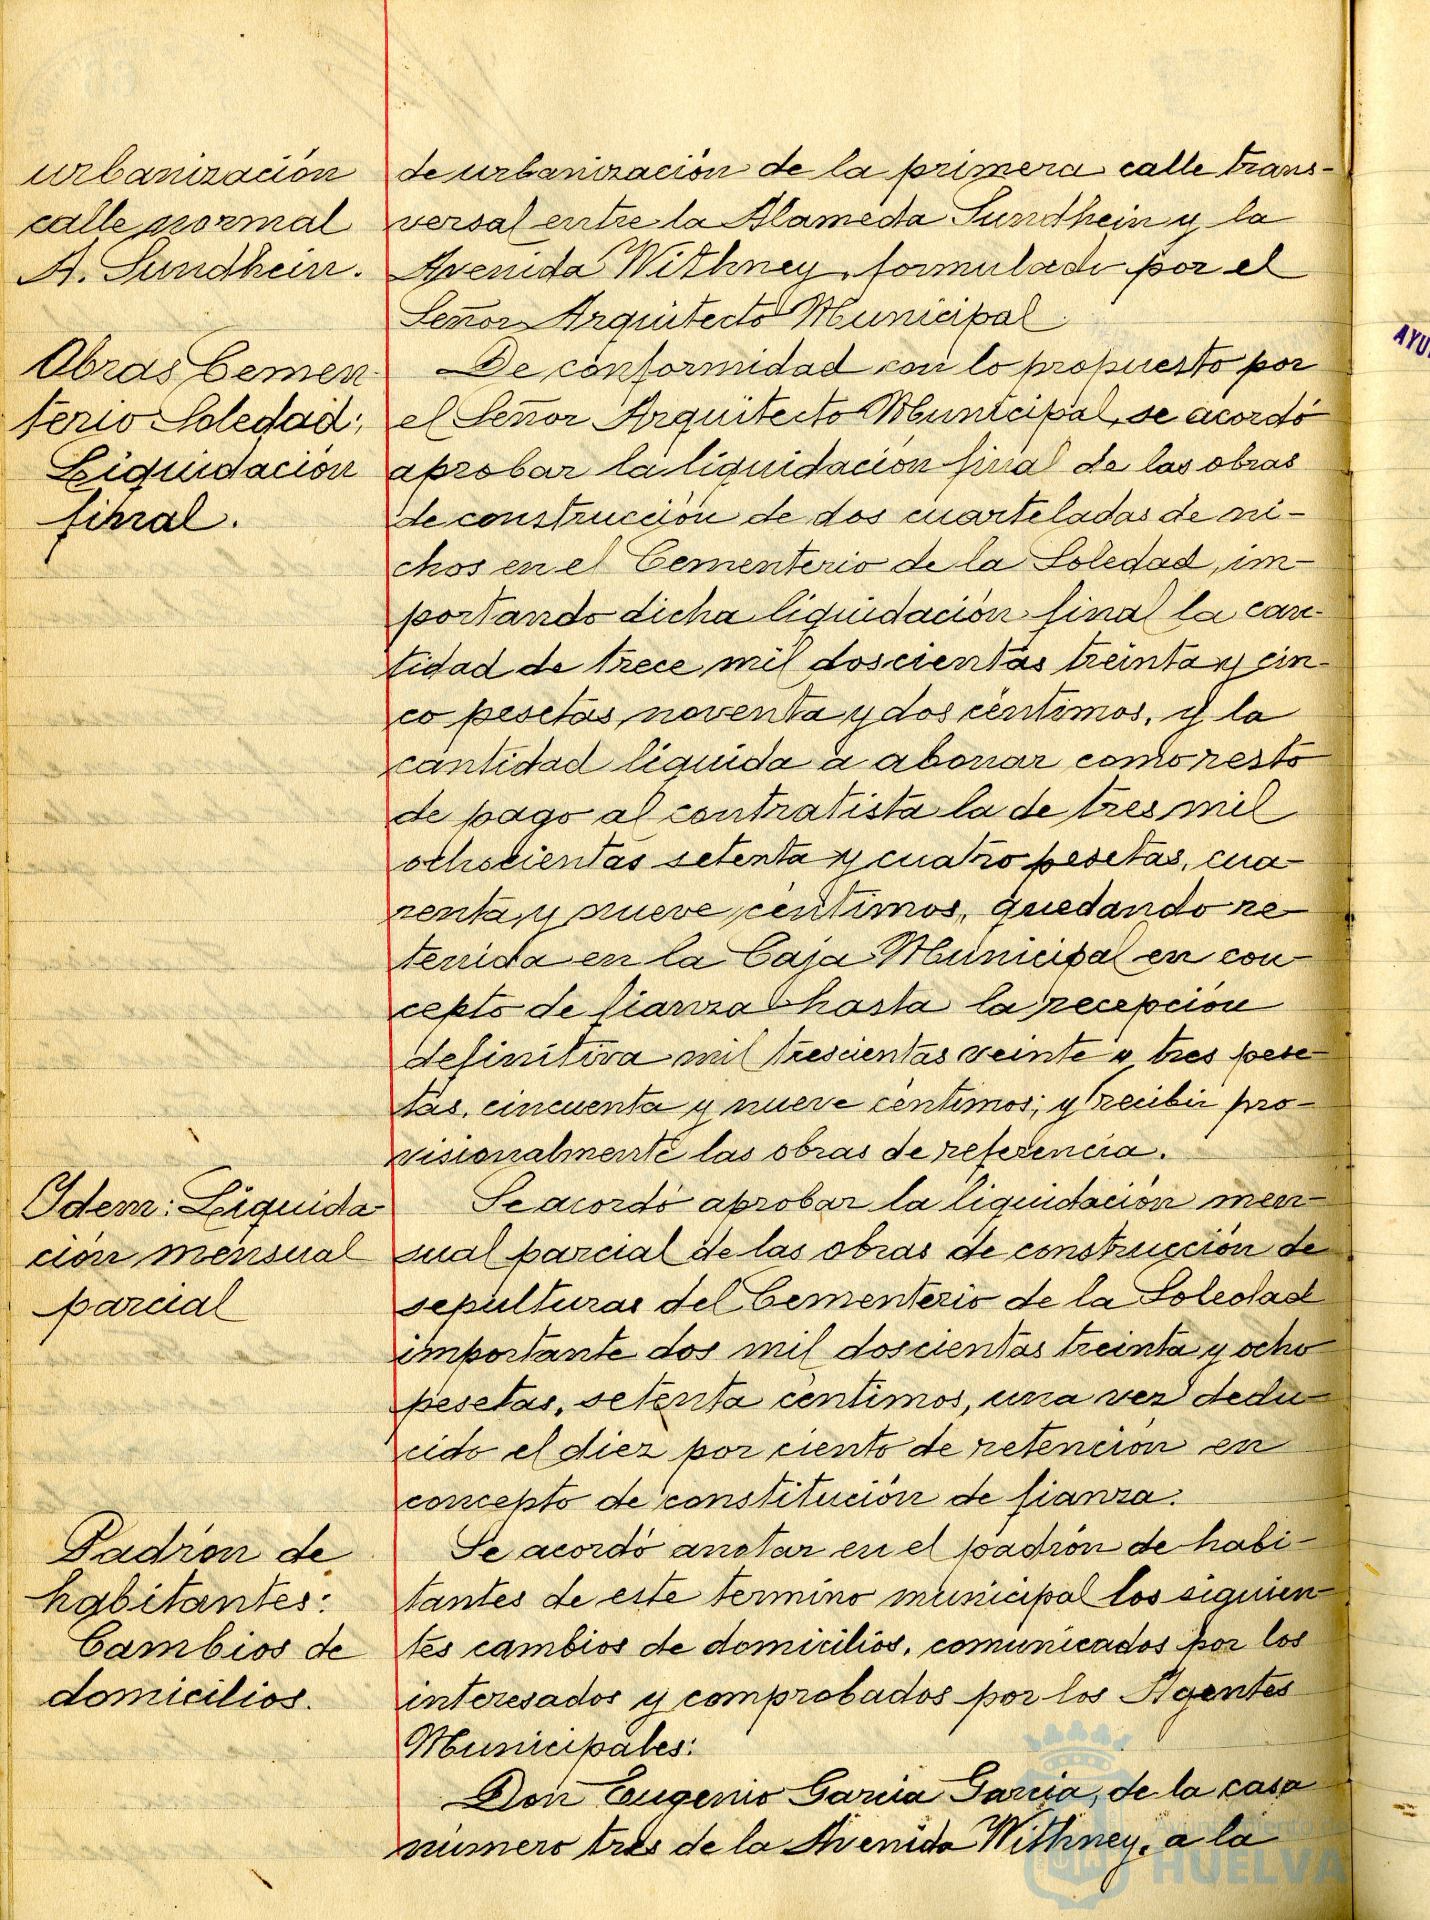 urbanización
calle normal
A. Sundhein.
de urbanización de la primera calle trans-
versal entre la Alameda Sundhein y la
Avenida Withney, formulado por el
Señor Arquitecto Municipal
Obras Cemen-
terio Soledad;
Liquidación
final.
De conformidad con lo propuesto por
el Señor Arquitecto Municipal, se acordó
aprobar la liquidación final de las obras
de construcción de dos cuarteladas de ni-
chos en el Cementerio de la Soledad, im-
portando dicha liquidación final la can-
tidad de trece mil doscientas treinta y cin-
co pesetas, noventa y dos céntimos, y la
cantidad líquida a abonar como resto
de pago al contratista la de tres mil
ochocientas setenta y cuatro pesetas, cua-
renta y nueve céntimos, quedando re-
tenida en la Caja Municipal en con-
cepto de fianza hasta la recepción
definitiva mil trescientas veinte y tres pese-
tas, cincuenta y nueve céntimos; y recibir pro-
visionalmente las obras de referencia.
Idem: Liquida-
ción mensual
parcial
Se acordó aprobar la liquidación men-
sual parcial de las obras de construcción de
sepulturas del Cementerio de la Soledad
importante dos mil doscientas treinta y ocho
pesetas, setenta céntimos, una vez dedu-
cido el diez por ciento de retención en
concepto de constitución de fianza.
Padrón de
habitantes:
Cambios de
domicilios.
Se acordó anotar en el padrón de habi-
tantes de este término municipal los siguien-
tes cambios de domicilios, comunicados por los
interesados y comprobados por los Agentes
Municipales:
Don Eugenio Garcia Garcia, de la casa
número tres de la Avenida Withney, a la
Ayuntamiento de
HUELVA